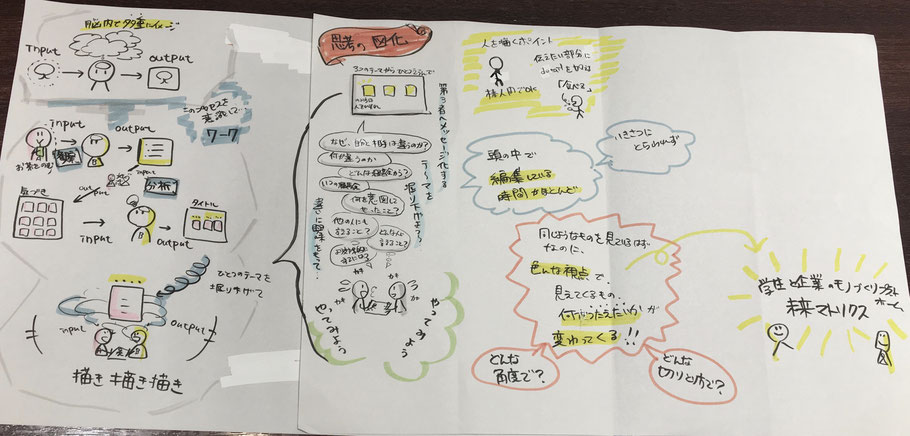 脳内で多重にイメージ
Input
output
このプロセスを
意識して…
ワーク
input
output
お茶をのむ
復原
input
分析
気づき
output
タイトル
input
output
ひとつのテーマを
掘り下げて
input
output
描き描き描き
思考の図化
3つのテーマからひとつえらんで
第3者へメッセージ化する
テーマを
掘り下げよう?
なぜ、自分と相手は違うのか?
何が違うのか
何を意図して
やったこと?
他の人にも
言えること?
どんなときに
言えること?
さらに興味をもって
やってみよう
やってみよう
人を描くポイント
伝えたい部分に
donutを加える
「食べる」
棒人間でOK
いきさつに
とらわれず
頭の中で
編集している
時間がほとんど
同じようなものを見ているはず
なのに、
色んな視点で
見えてくるもの
何がうったえたいかが
変わってくる!!
どんな
角度で?
どんな
切りとり方で?
学生と企業のモノづくりプラットホーム
未来マトリクス